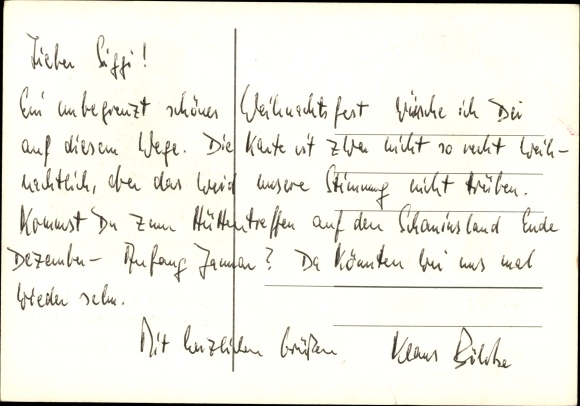 Lieber Siggi!
Ein unbegrenzt schönes Weihnachtsfest wünsche ich Dir
auf diesem Wege. Die Karte ist zwar nicht so recht weih-
nachtlich, aber das wird unsere Stimmung nicht trüben.
Kommst Du zum Hüttentreffen auf den Schauinsland Ende
Dezember - Anfang Januar? Da könnten wir uns mal
wieder sehn.
Mit herzlichen Grüßen Klaus